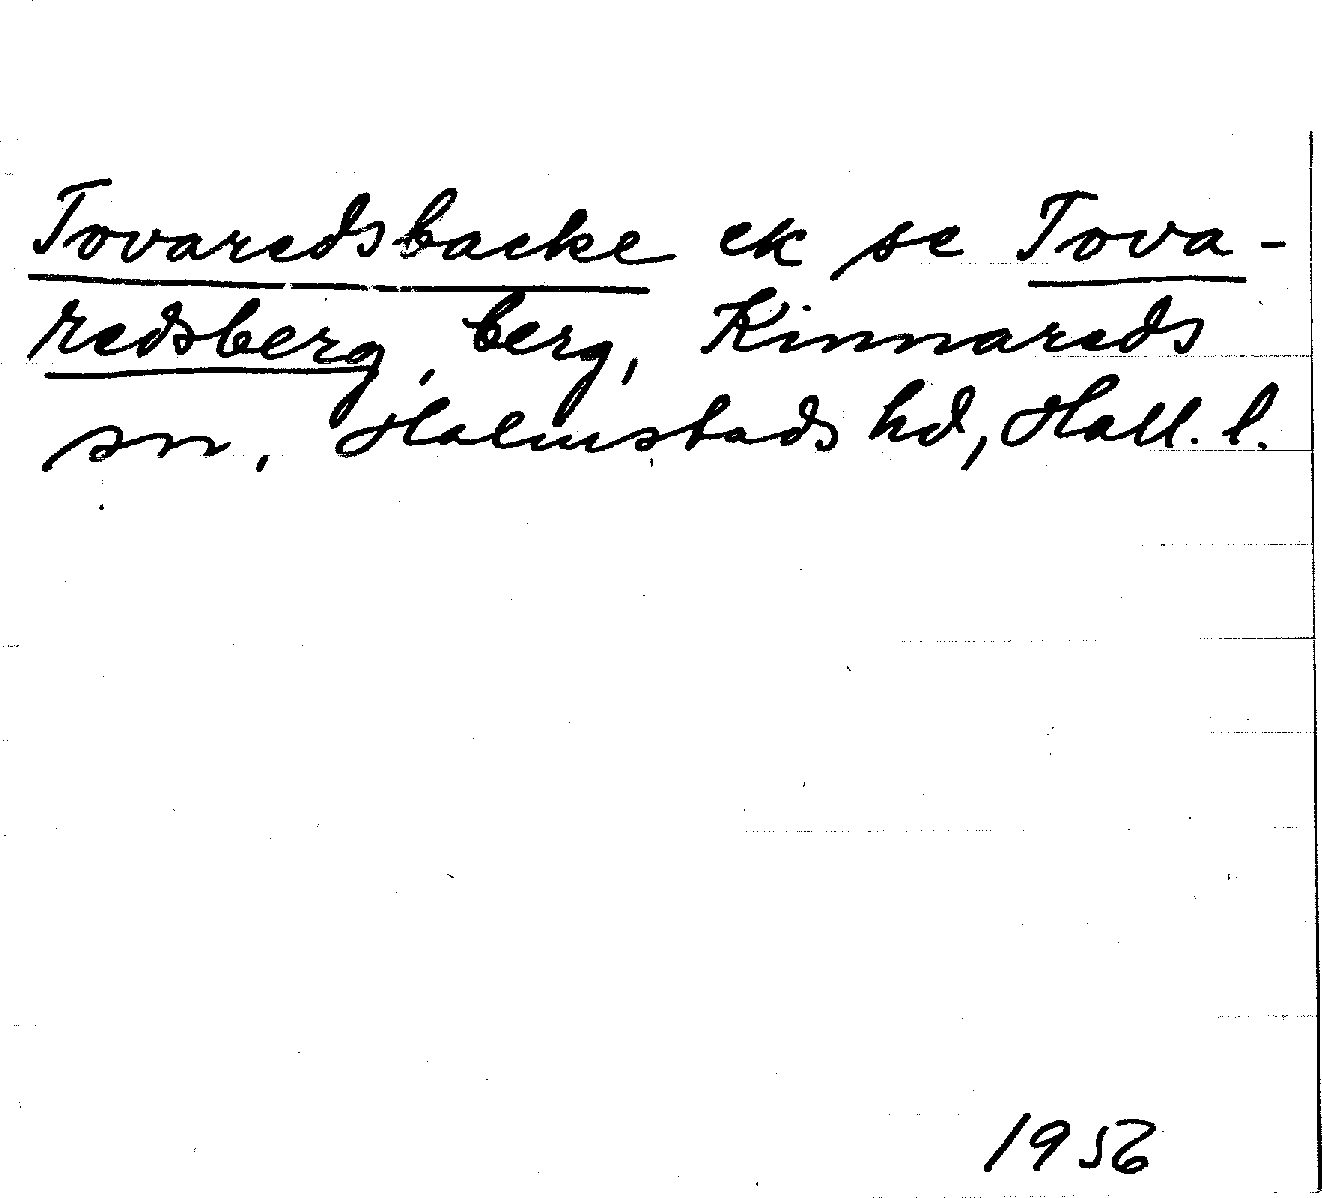 Tovaredsbacke ek se Tova-
redsberg, berg, Kinnareds
sn, Halmstads hd, Hall. l.
1956